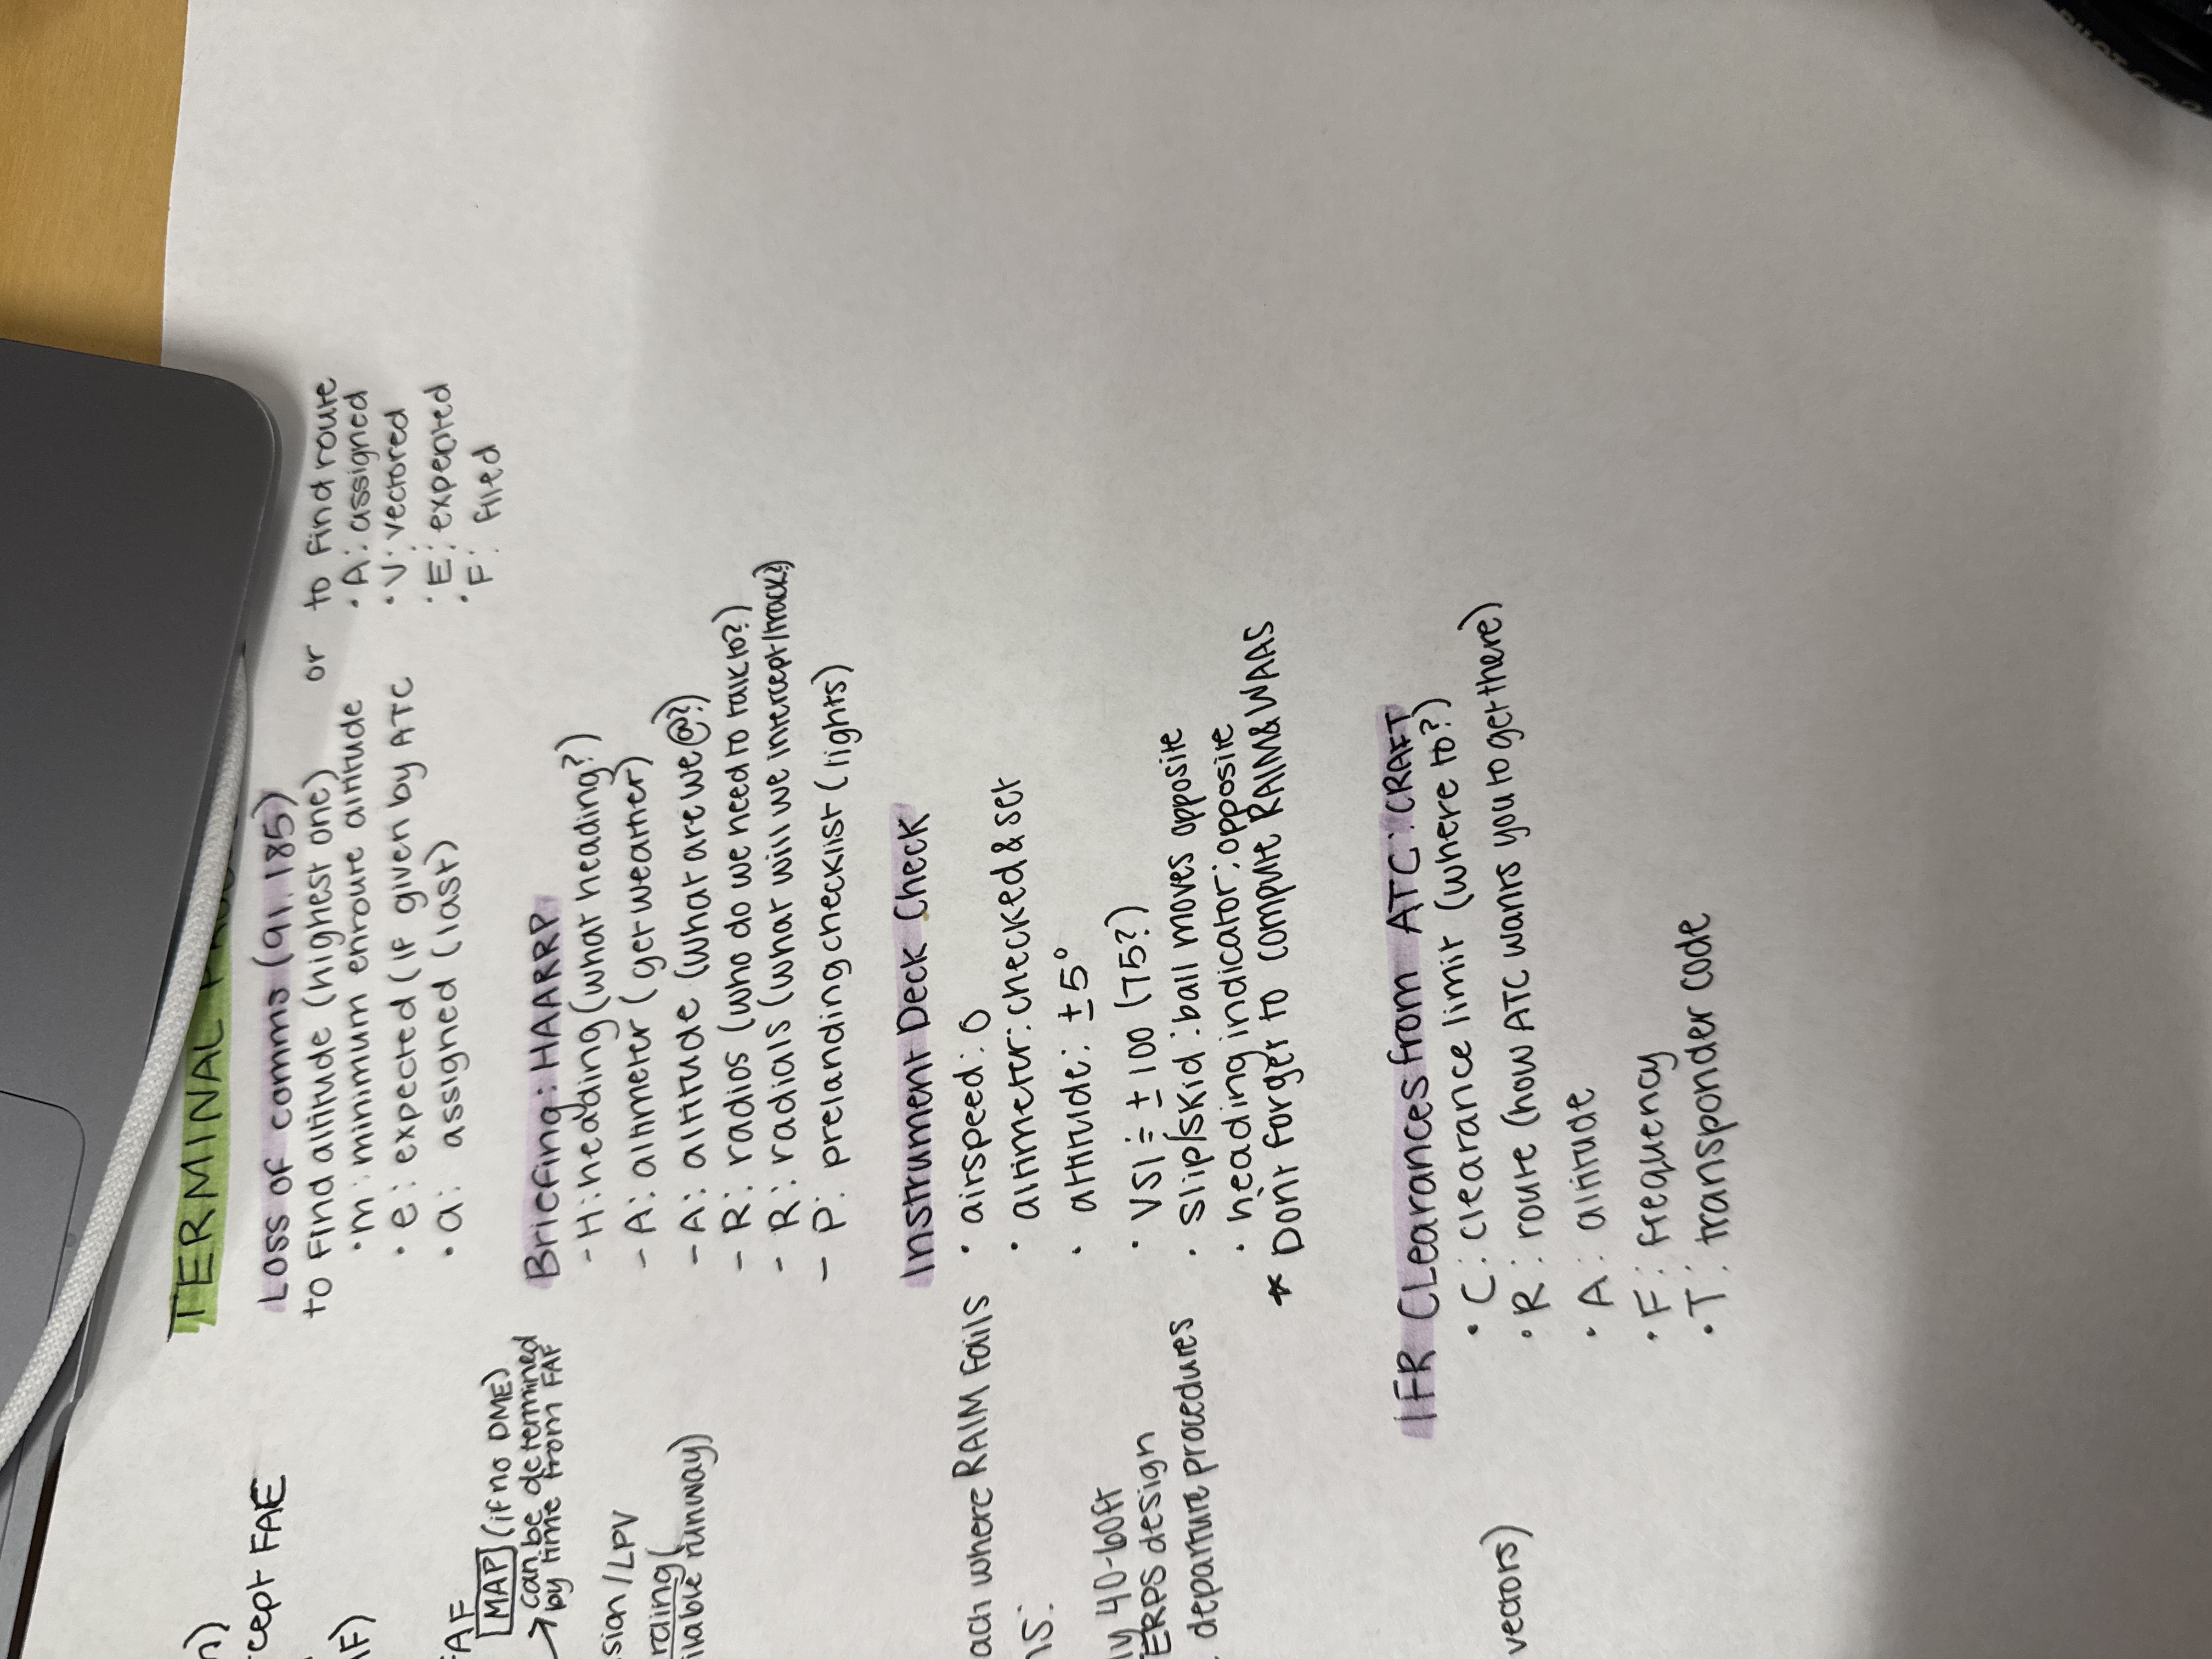 TERMINAL
Loss of comms (91.185)
to find altitude (highest one)
• m: minimum enroute altitude
• e: expected (if given by ATC
• a: assigned (last)
or
to find route
• A: assigned
• V: vectored
• E: expected
• F: filed
Briefing: HAARRP
- H: heading (what heading?)
- A: altimeter (get weather)
- A: altitude (what are we @?)
- R: radios (who do we need to talk to?)
- R: radials (what will we intercept/track?)
- P: prelanding checklist (lights)
Instrument Deck Check
• airspeed: 0
• altimeter: checked & set
• attitude: ±5°
• VSI: ± 100 (75?)
• slip/skid: ball moves opposite
• heading indicator: opposite
* Don't forget to compute RAIM & WAAS
IFR Clearances from ATC: CRAFT
• C: clearance limit (where to?)
• R: route (how ATC wants you to get there)
• A: altitude
• F: frequency
• T: transponder code
cept FAE
IF)
FAF
MAP (if no DME)
→ can be determined
by time from FAF
sion/LPV
ilable runway)
ach where RAIM fails
ns.
ly 40-60ft
ERPS design
departure procedures
vectors)